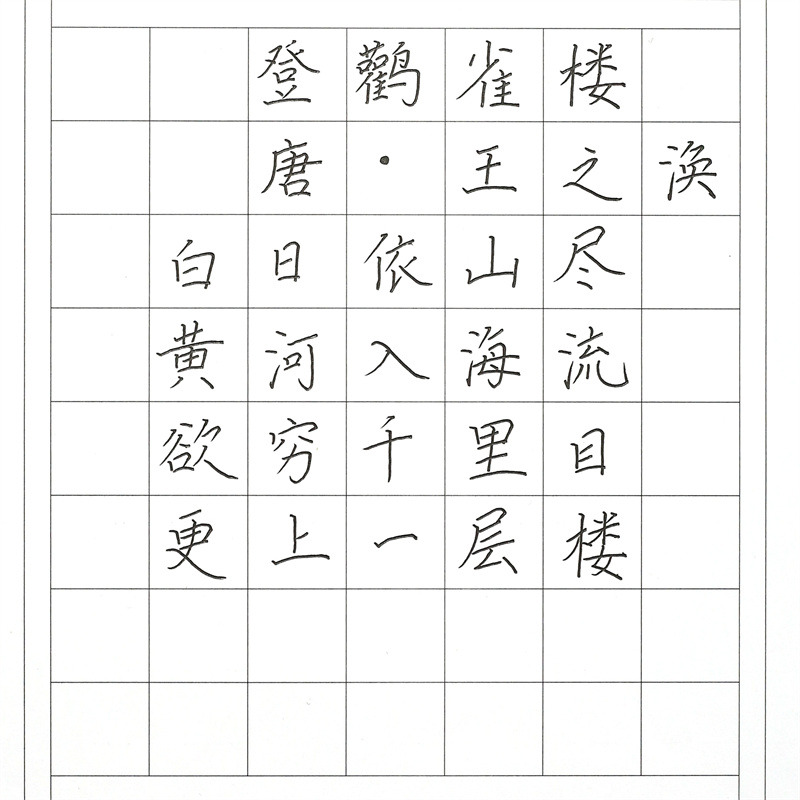 登鸛雀楼
唐·王之涣
白日依山尽
黄河入海流
欲穷千里目
更上一层楼